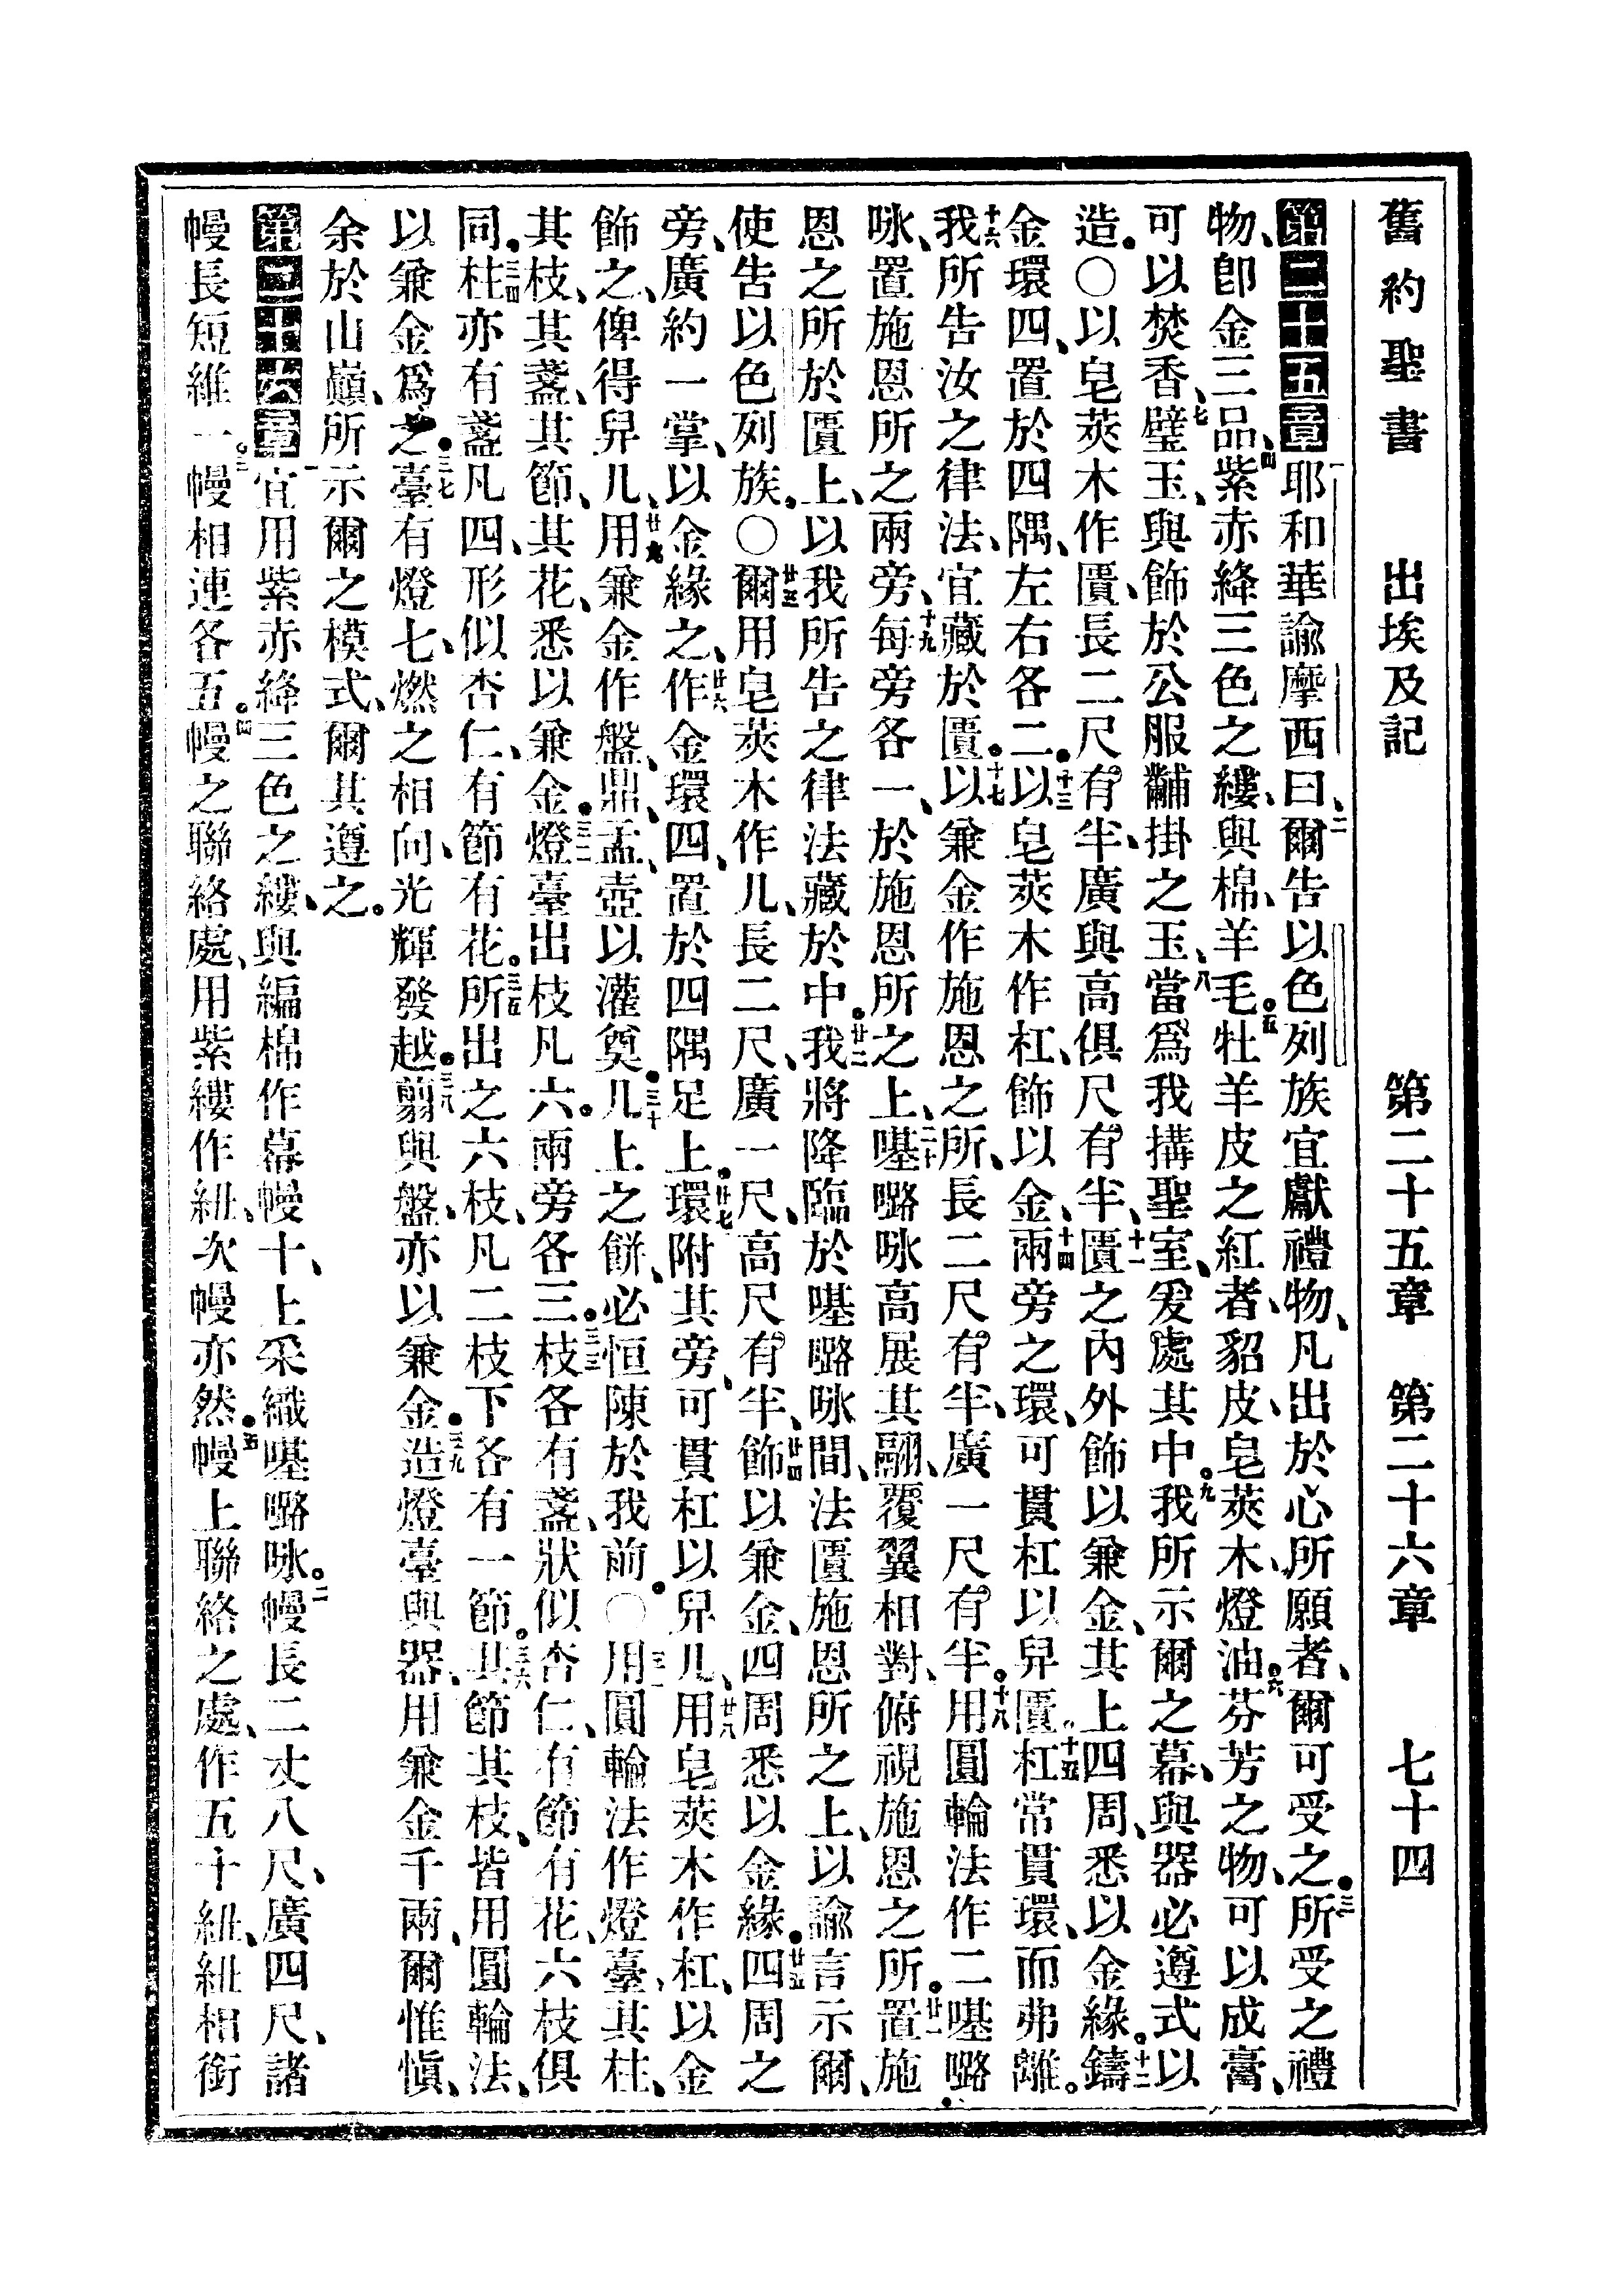 舊約聖書 出埃及記 第二十五章 第二十六章 七十四
第二十五章耶和華諭摩西曰、二爾告以色列族宜獻禮物、凡出於心所願者、爾可受之。三所受之禮
物、卽金三品、四紫赤絳三色之縷、與棉、羊毛。五牡羊皮之紅者、貂皮、皂莢木、燈油。六芬芳之物、可以成膏、
可以焚香、七璧玉、與飾於公服黼掛之玉、八當爲我搆聖室、爰處其中。九我所示爾之幕、與器必遵式以
造。〇以皂莢木作匱、長二尺有半、廣與高俱尺有半、十一匱之內外飾以兼金、其上四周、悉以金緣。十二鑄
金環四、置於四隅、左右各二。十三以皂莢木作杠、飾以金、十四兩旁之環、可貫杠以舁匱。十五杠常貫環、而弗離。
十六我所告汝之律法、宜藏於匱。十七以兼金作施恩之所、長二尺有半、廣一尺有半。十八用圓輪法作二𠼻𠺕
咏、置施恩所之兩旁、十九每旁各一、於施恩所之上、二十𠼻𠺕咏高展其翮、覆翼相對、俯視施恩之所。廿一置施
恩之所於匱上、以我所告之律法、藏於中。廿二我將降臨於𠼻𠺕咏間、法匱施恩所之上、以諭言示爾、
使告以色列族。〇廿三爾用皂莢木作几、長二尺、廣一尺、高尺有半、廿四飾以兼金、四周悉以金緣。廿五四周之
旁、廣約一掌、以金緣之、廿六作金環四、置於四隅足上。廿七環附其旁、可貫杠以舁几、廿八用皂莢木作杠、以金
飾之、俾得舁几、廿九用兼金作盤、鼎、盂、壺以灌奠。三十几上之餅、必恒陳於我前。〇三一用圓輪法作燈臺、其柱、
其枝、其盞、其節、其花、悉以兼金。三二燈臺出枝凡六。兩旁各三。三三枝各有盞、狀似杏仁、有節有花、六枝俱
同。三四柱亦有盞凡四、形似杏仁、有節有花。三五所出之六枝、凡二枝下各有一節。三六其節其枝、皆用圓輪法、
以兼金爲之。三七臺有燈七、燃之相向、光輝發越。三八剪與盤、亦以兼金。三九造燈臺與器、用兼金千兩、爾惟愼、
余於山巔、所示爾之模式、爾其遵之。
第二十六章一宜用紫赤絳三色之縷、與編棉作幕幔十、上采織𠼻𠺕咏。二幔長二丈八尺、廣四尺、諸
幔長短維一。三幔相連各五。四幔之聯絡處、用紫縷作紐、次幔亦然。五幔上聯絡之處、作五十紐、紐相銜